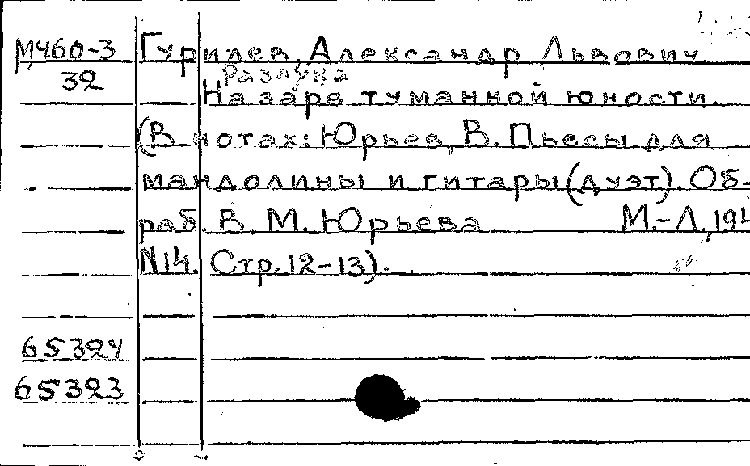 М460-3 Гурилев, Александр Львович
32 Разлука
На заре туманной юности.
(В нотах: Юрьев, В. Пьесы для
мандолины и гитары (дуэт). Об-
раб. В. М. Юрьева М.-Л., 194
N14. Стр. 12-13).
65324
65323